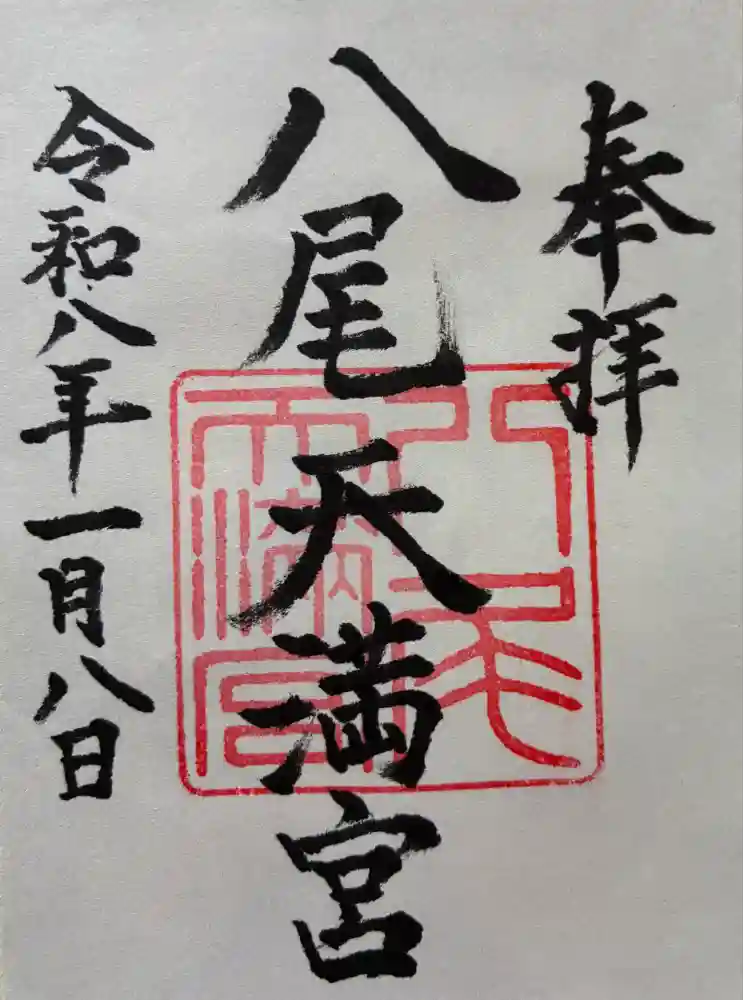 奉拝
八尾天満宮
令和八年一月八日